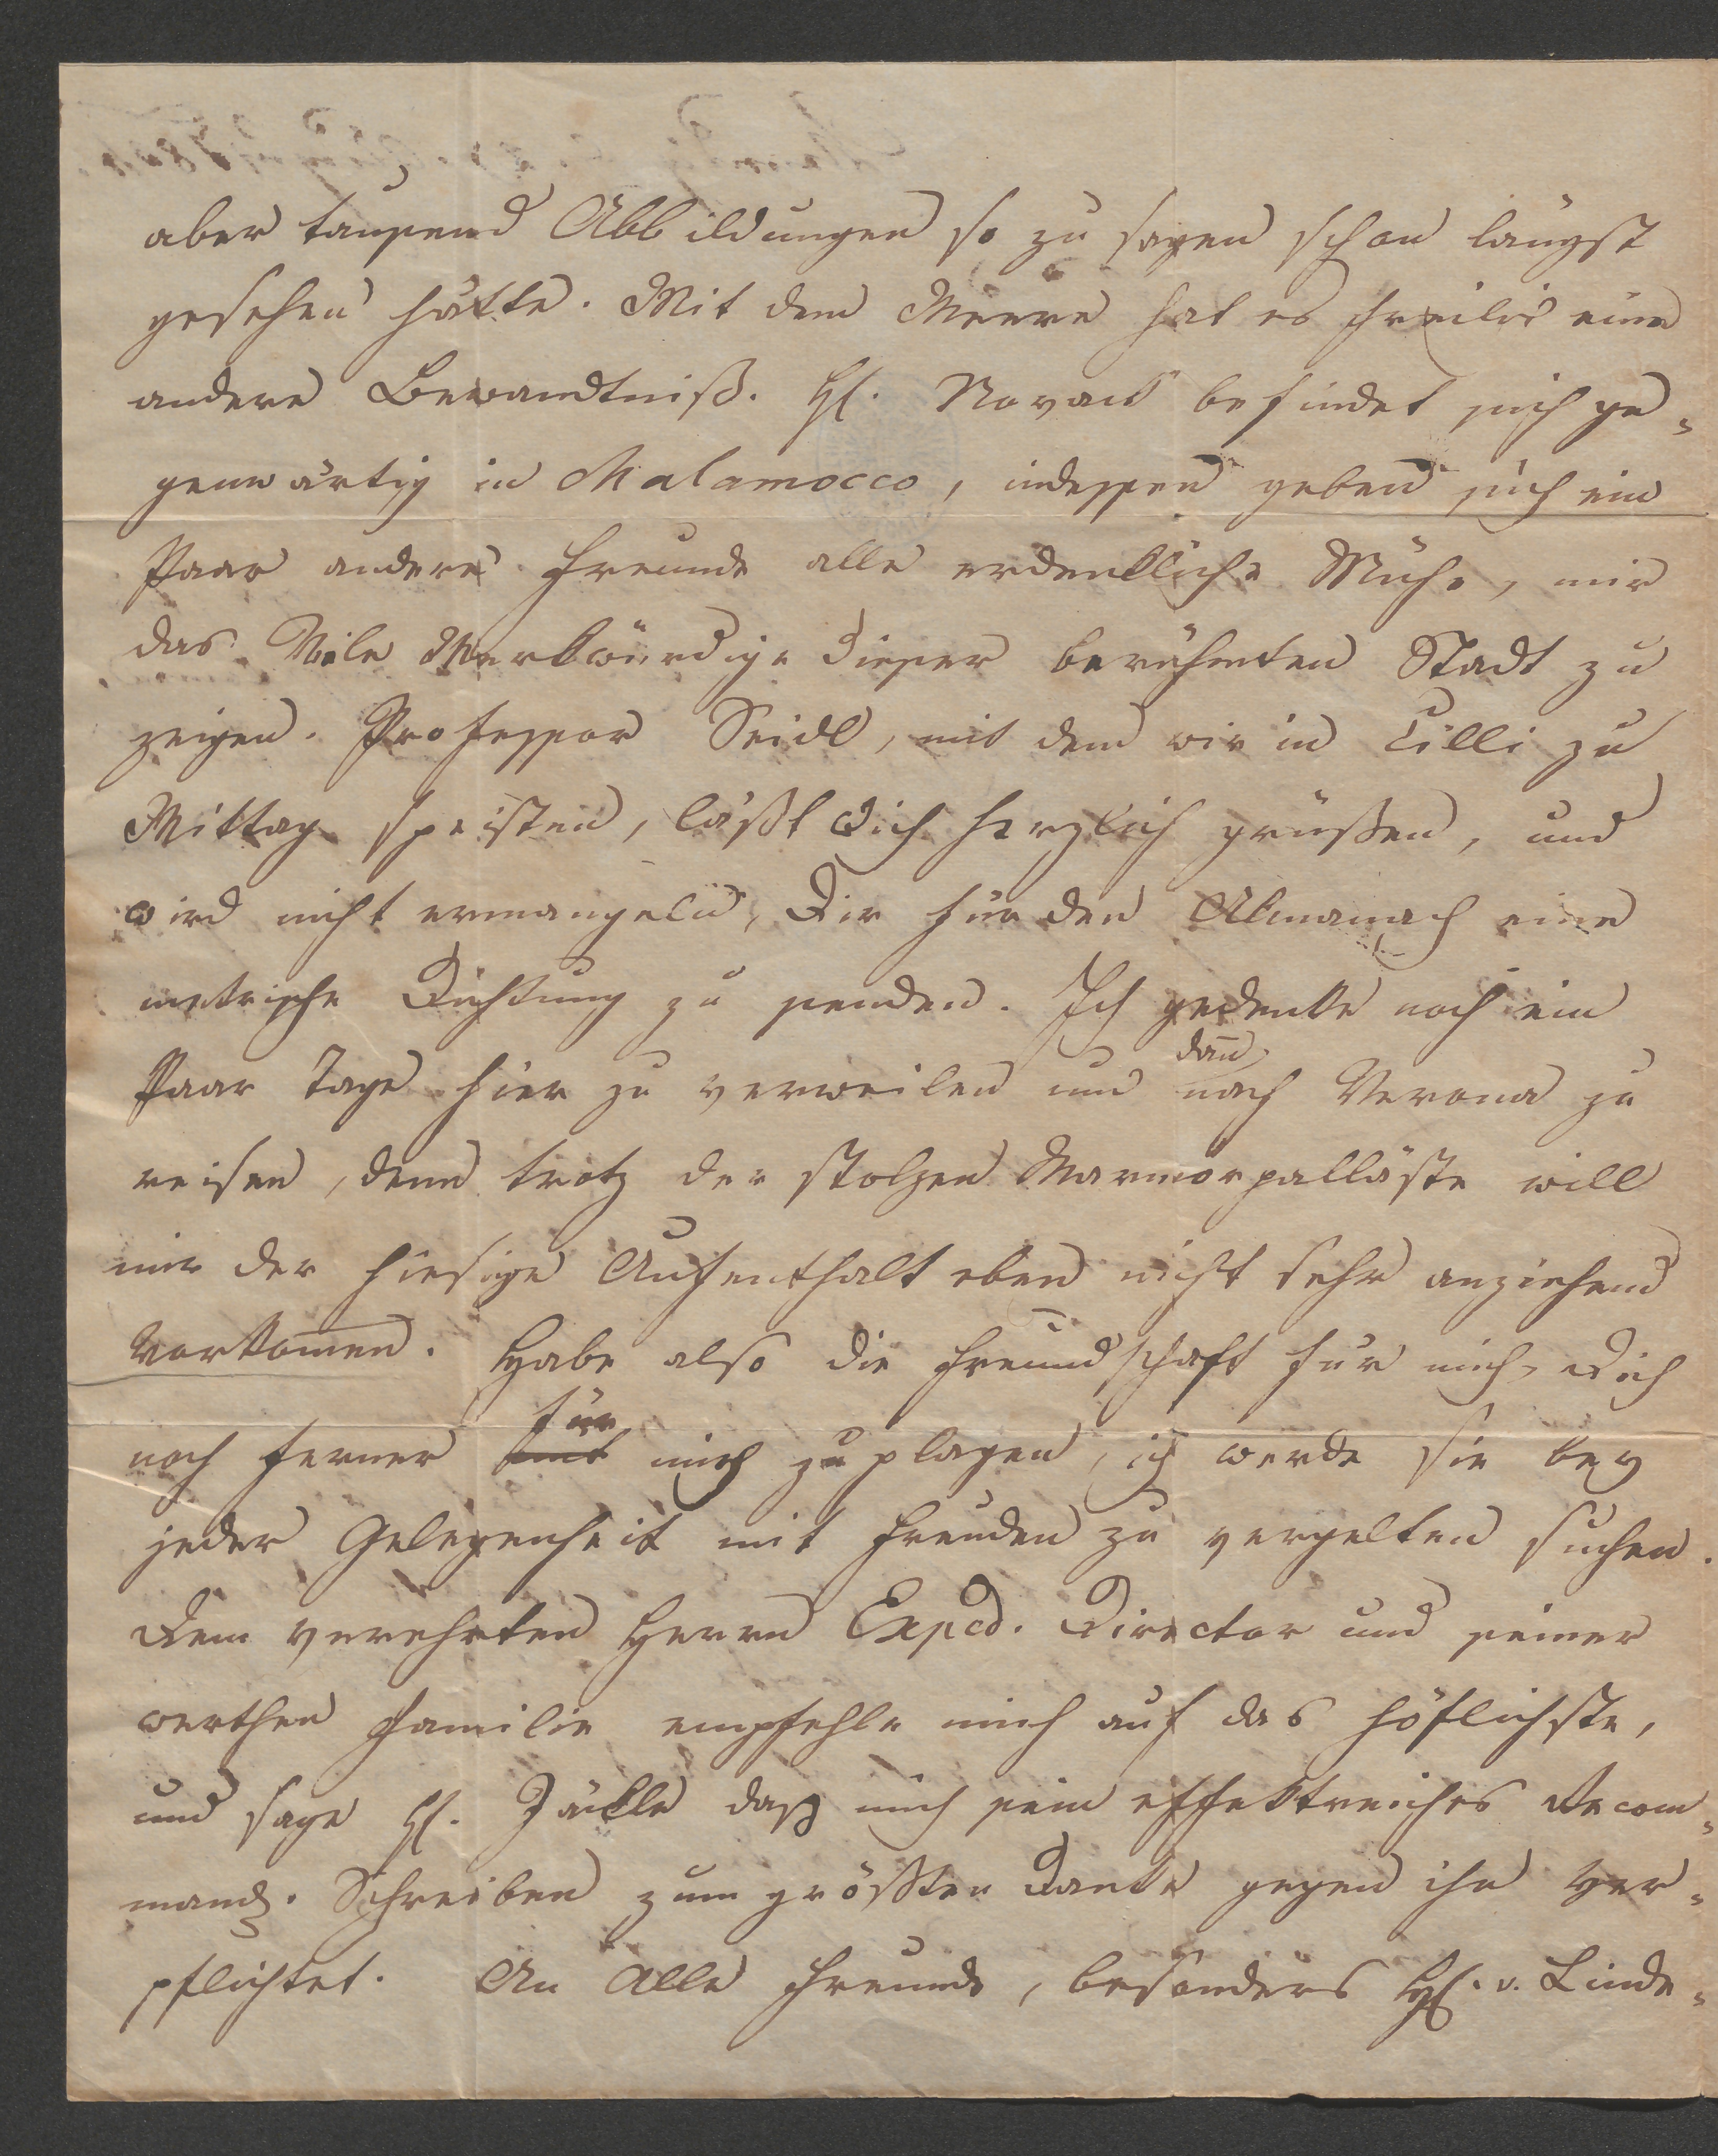 aber tausend Abbildungen so zu sagen schon längst
gesehen hätte. Mit dem Meere hat es freilich eine
andere Bewandtniß. H. Novak befindet sich ge-
genwärtig in Malamocco, indessen geben sich ein
Paar andere Freunde alle erdenkliche Mühe, mir
das Viele Merkwürdige dieser berühmten Stadt zu
zeigen. Professor Seidl, mit dem wir in Cilli zu
Mittag speisten, läßt Dich herzlich grüßen, und
wird nicht ermangeln, Dir für den Almanach eine
metrische Dichtung zu senden. Ich gedenke noch ein
Paar Tage hier zu verweilen und dan̄ nach Verona zu
reisen, denn trotz der stolzen Marmorpalläste will
mir der hiesige Aufenthalt eben nicht sehr anziehend
vorkom̄en. Habe also die Freundschaft für mich, Dich
noch ferner für mich zu plagen, ich werde sie bey
jeder Gelegenheit mit Freuden zu vergelten suchen.
Dem verehrten Herrn Exped. Director und seiner
werthen Familie empfehle mich auf das höflichste,
und sage H. Jäckle daß mich sein effektreiches Recom-
mand. Schreiben zum größten Danke gegen ihn ver-
pflichtet. An Alle Freunde, besonders H. v. Linde-